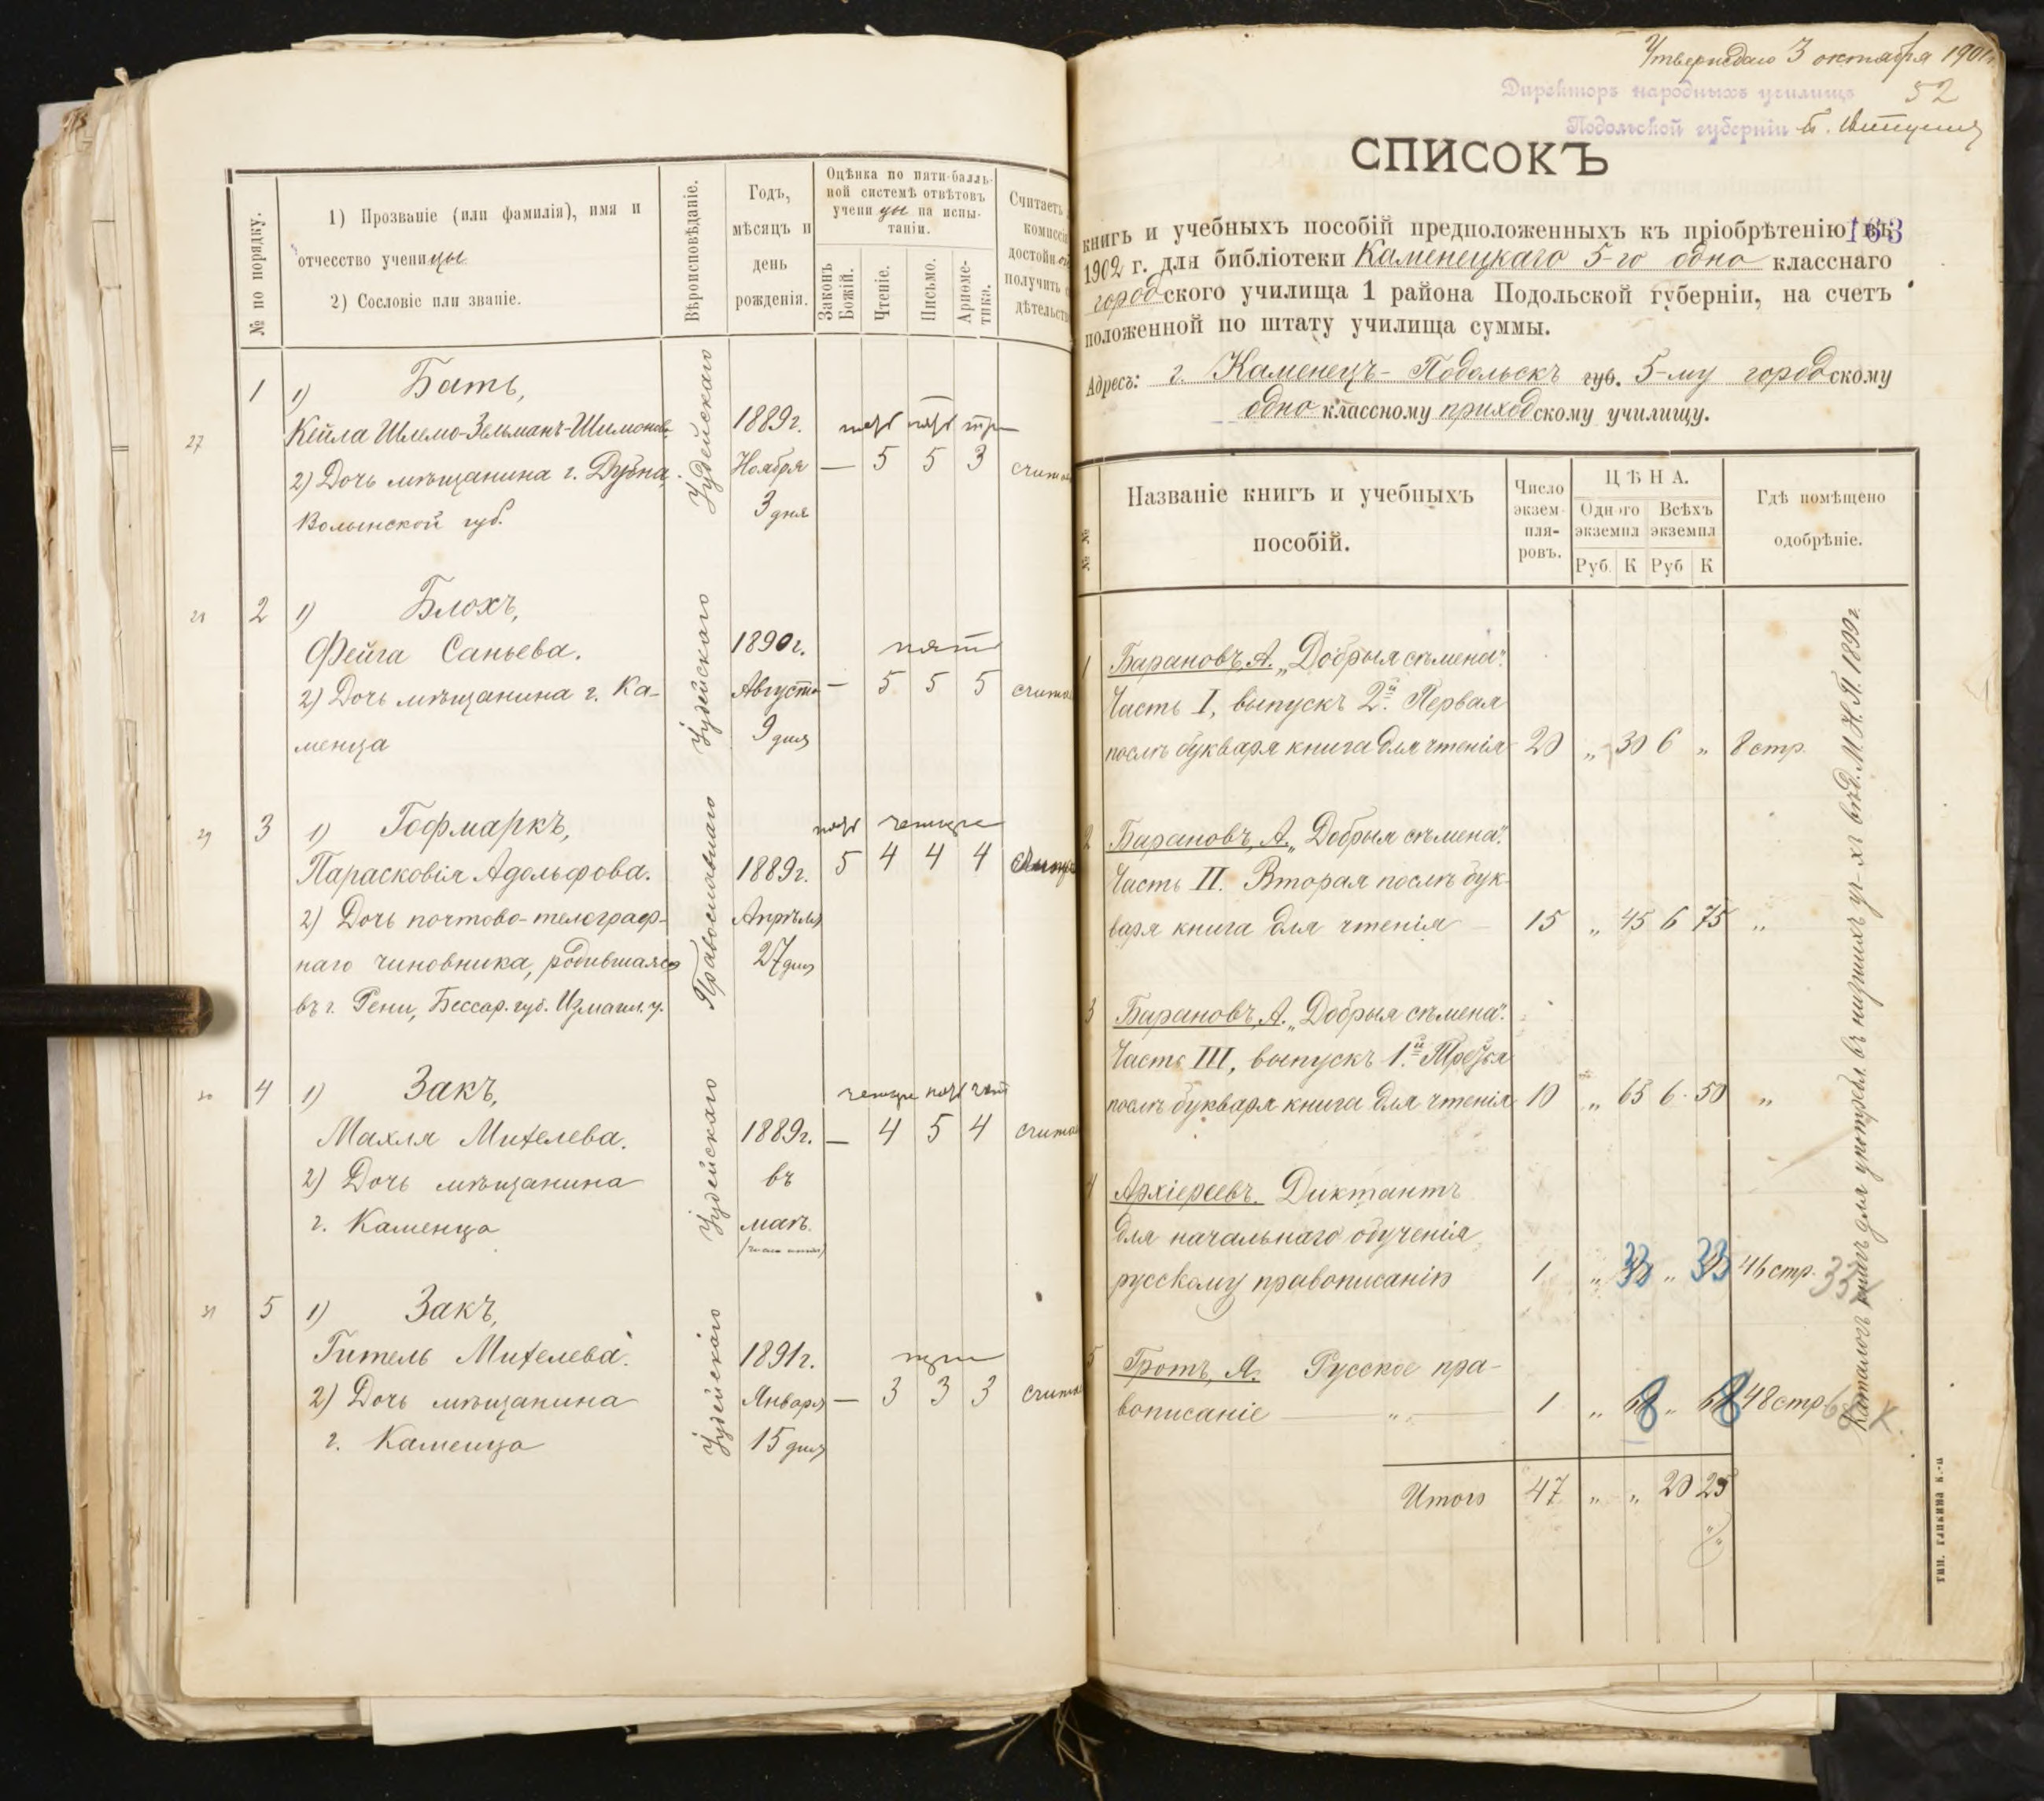 № по порядку.
1) Прозваніе (или фамилія), имя и
отчесство учени цы
2) Сословіе или званіе.
Вѣроисповѣданіе.
Годъ,
мѣсяцъ и
день
рожденія.
Оцѣнка по пяти-балль-
ной системѣ отвѣтовъ
учени цы на испы-
таніи.
Законъ
Божій.
Чтеніе.
Письмо.
Ариѳме-
тика.
Считаетъ
комиссі
достойн
получить
дѣтельств
1 1) Батъ,
27 Кейла Шлемо-Зельманъ-Шимонова
2) Дочь мѣщанина г. Дубна,
Волынской губ.
Іудейскаго
1889г.
Ноября
3 дня
пять пять три
— 5 5 3
28 2 1) Блохъ,
Фейга Саньева.
2) Дочь мѣщанина г. Ка-
менца
Іудейскаго
1890г.
Августа
9 дня
пять
— 5 5 5
29 3 1) Гофмаркъ,
Парасковія Адольфова.
2) Дочь почтово-телеграф-
наго чиновника, родившаяся
въ г. Рени, Бессар. губ. Измаил. у.
Православнаго
1889г.
Апрѣля
27 дня
пять четыре
5 4 4 4
30 4 1) Закъ,
Махля Михелева.
2) Дочь мѣщанина
г. Каменца
Іудейскаго
1889г.
въ
маѣ.
четыре пять чет
— 4 5 4
31 5 1) Закъ,
Гитель Михелева.
2) Дочь мѣщанина
г. Каменца
Іудейскаго
1891г.
Января
15 дня
три
— 3 3 3
Утверждаю 3 октября 1901г.
Директоръ народныхъ училищъ
52
Подольской губерніи
СПИСОКЪ
книгъ и учебныхъ пособій предположенныхъ къ пріобрѣтенію въ
163
1902 г. для библіотеки Каменецкаго 5-го одно класснаго
городского училища 1 района Подольской губерніи, на счетъ
положенной по штату училища суммы.
Адресъ: г. Каменецъ-Подольскъ губ. 5-му городскому
одно классному приходскому училищу.
№ №
Названіе книгъ и учебныхъ
пособій.
Число
экзем-
пля-
ровъ.
ЦѢНА.
Одного
экземпл
Всѣхъ
экземпл
Руб. К Руб К
Гдѣ помѣщено
одобрѣніе.
1 Барановъ, А. „Добрыя сѣмена".
Часть I, выпускъ 2й. Первая
послѣ букваря книга для чтенія 20 „ 30 6 „ 8 стр.
2 Барановъ, А. „Добрыя сѣмена".
Часть II. Вторая послѣ бук-
варя книга для чтенія — 15 „ 45 6 75 „
3 Барановъ, А. „Добрыя сѣмена".
Часть III, выпускъ 1й. Третья
послѣ букваря книга для чтенія 10 „ 65 6 50 „
4 Архіереевъ. Диктантъ
для начальнаго обученія
русскому правописанію 1 „ 33 „ 33 46 стр.
5 Гротъ, Я. Русское пра-
вописаніе — „ — 1 „ 8 „ 8 48 стр.
Итого 47 „ „ 20 25
Каталогъ книгъ для употребл. въ низшихъ уч-хъ вѣд. М. Н. П. 1899г.